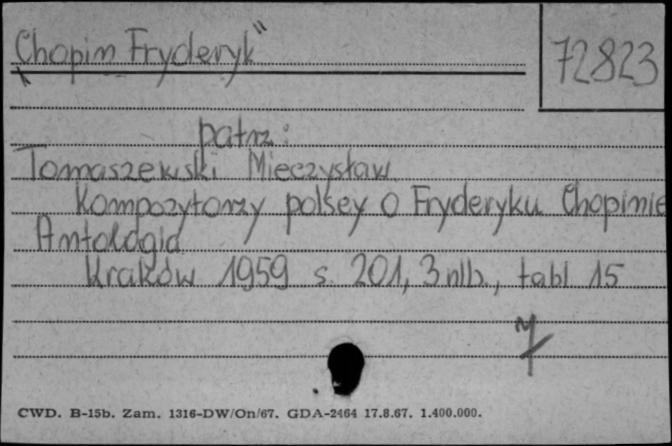 "Chopin Fryderyk"
72823
patrz:
Tomaszewski Mieczysław
Kompozytorzy polscy o Fryderyku Chopinie
Antologia
Kraków 1959 s. 201, 3 nlb., tabl 15
CWD. B-15b. Zam. 1316-DW/On/67. GDA-2464 17.8.67. 1.400.000.